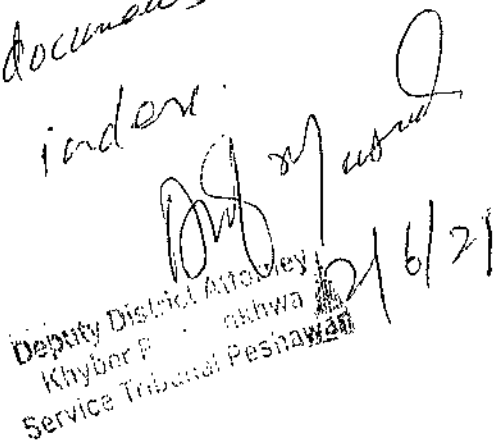 documents
index.
2/6/21
Deputy District Attorney
Khyber P akhwa
Service Tribunal Peshawar